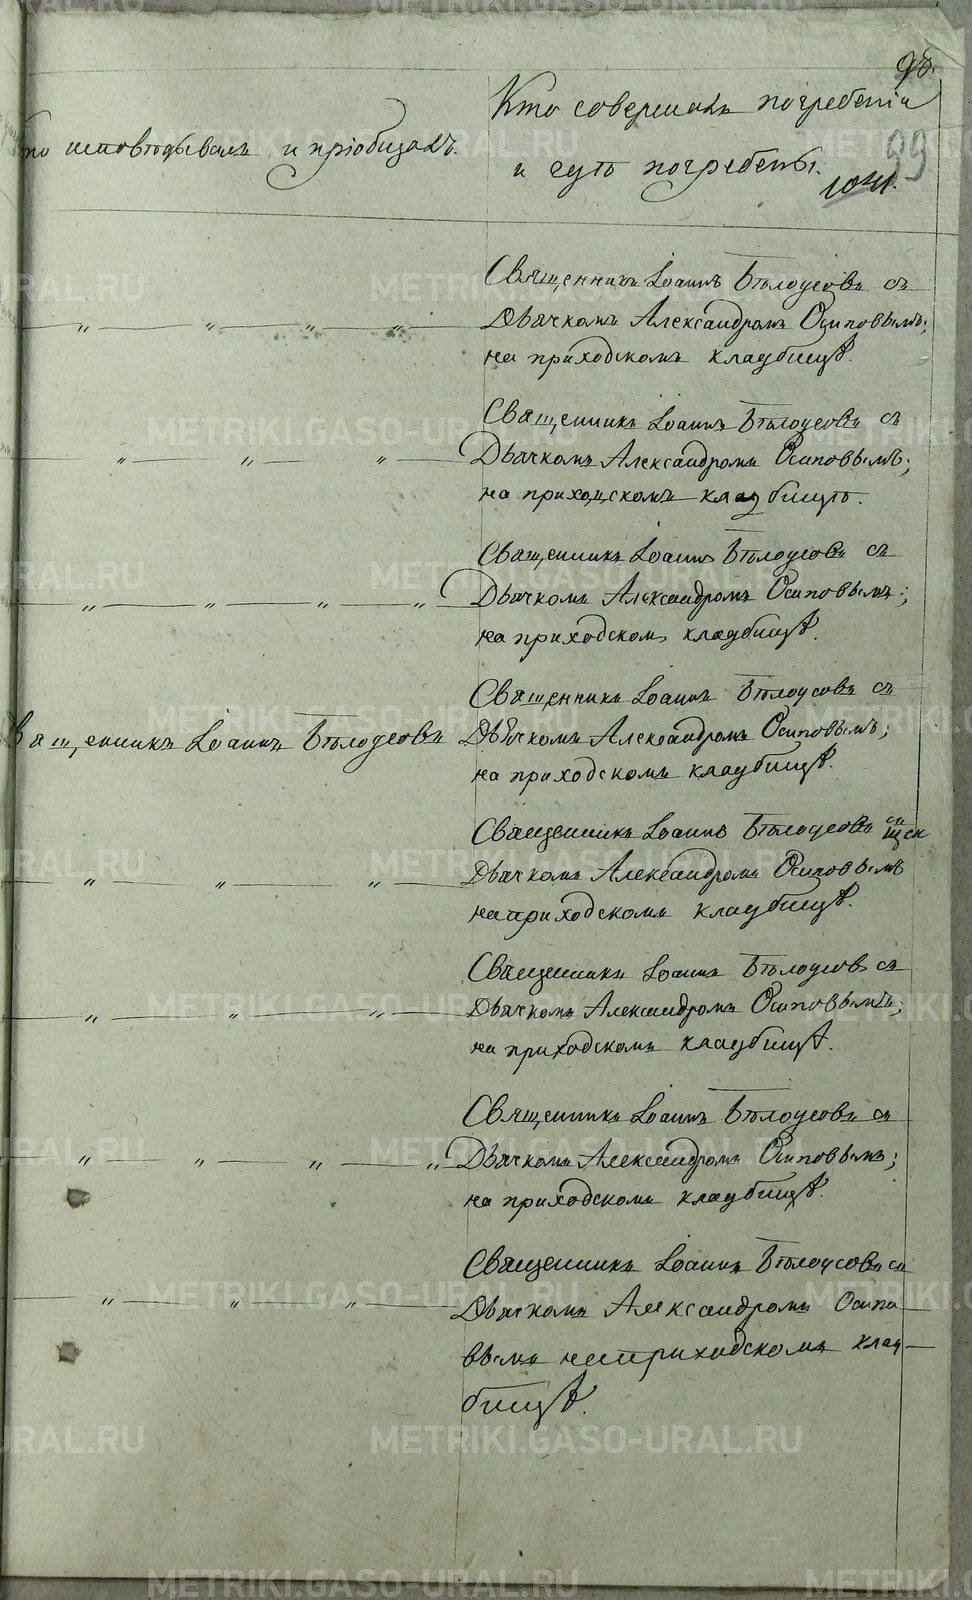 98.
99
1041.
Кто исповѣдывалъ и пріобщалъ.
Кто совершалъ погребеніе
и суть погребены.
Священникъ Іоаннъ Бѣлоусовъ съ
Дьячкомъ Александромъ Осиповымъ;
на приходскомъ кладбищѣ.
Священникъ Іоаннъ Бѣлоусовъ съ
Дьячкомъ Александромъ Осиповымъ;
на приходскомъ кладбищѣ.
Священникъ Іоаннъ Бѣлоусовъ съ
Дьячкомъ Александромъ Осиповымъ;
на приходскомъ кладбищѣ.
Священникъ Іоаннъ Бѣлоусовъ
Священникъ Іоаннъ Бѣлоусовъ съ
Дьячкомъ Александромъ Осиповымъ;
на приходскомъ кладбищѣ.
Священникъ Іоаннъ Бѣлоусовъ съ
Дьячкомъ Александромъ Осиповымъ
на приходскомъ кладбищѣ.
Священникъ Іоаннъ Бѣлоусовъ съ
Дьячкомъ Александромъ Осиповымъ;
на приходскомъ кладбищѣ.
Священникъ Іоаннъ Бѣлоусовъ съ
Дьячкомъ Александромъ Осиповымъ;
на приходскомъ кладбищѣ.
Священникъ Іоаннъ Бѣлоусовъ съ
Дьячкомъ Александромъ Осипо
вымъ на приходскомъ клад
бищѣ.
METRIKI.GASO-URAL.RU